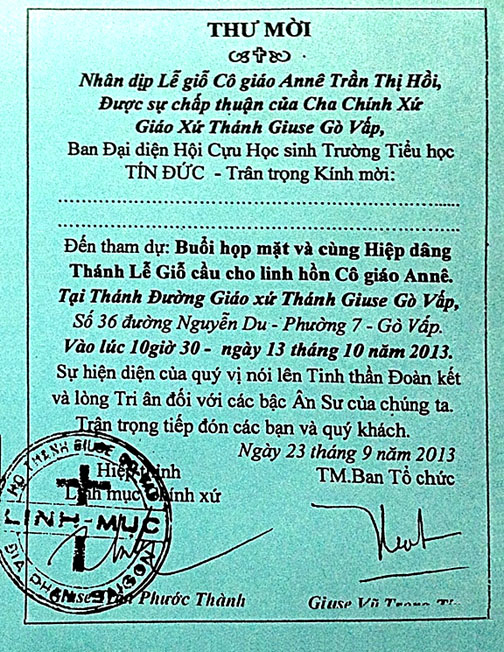 THƯ MỜI
Nhân dịp Lễ giỗ Cô giáo Annê Trần Thị Hồi,
Được sự chấp thuận của Cha Chính Xứ
Giáo Xứ Thánh Giuse Gò Vấp,
Ban Đại diện Hội Cựu Học sinh Trường Tiểu học
TÍN ĐỨC - Trân trọng Kính mời:
Đến tham dự: Buổi họp mặt và cùng Hiệp dâng
Thánh Lễ Giỗ cầu cho linh hồn Cô giáo Annê.
Tại Thánh Đường Giáo xứ Thánh Giuse Gò Vấp,
Số 36 đường Nguyễn Du - Phường 7 - Gò Vấp.
Vào lúc 10giờ 30 - ngày 13 tháng 10 năm 2013.
Sự hiện diện của quý vị nói lên Tinh thần Đoàn kết
và lòng Tri ân đối với các bậc Ân Sư của chúng ta.
Trận trọng tiếp đón các bạn và quý khách.
Ngày 23 tháng 9 năm 2013
Hiệp TM.Ban Tổ chức
Linh mục Chính xứ
HỌ THÁNH GIUSE
LINH-MỤC
ĐỊA PHẬN
Giuse Phước Thành Giuse Vũ Trọng